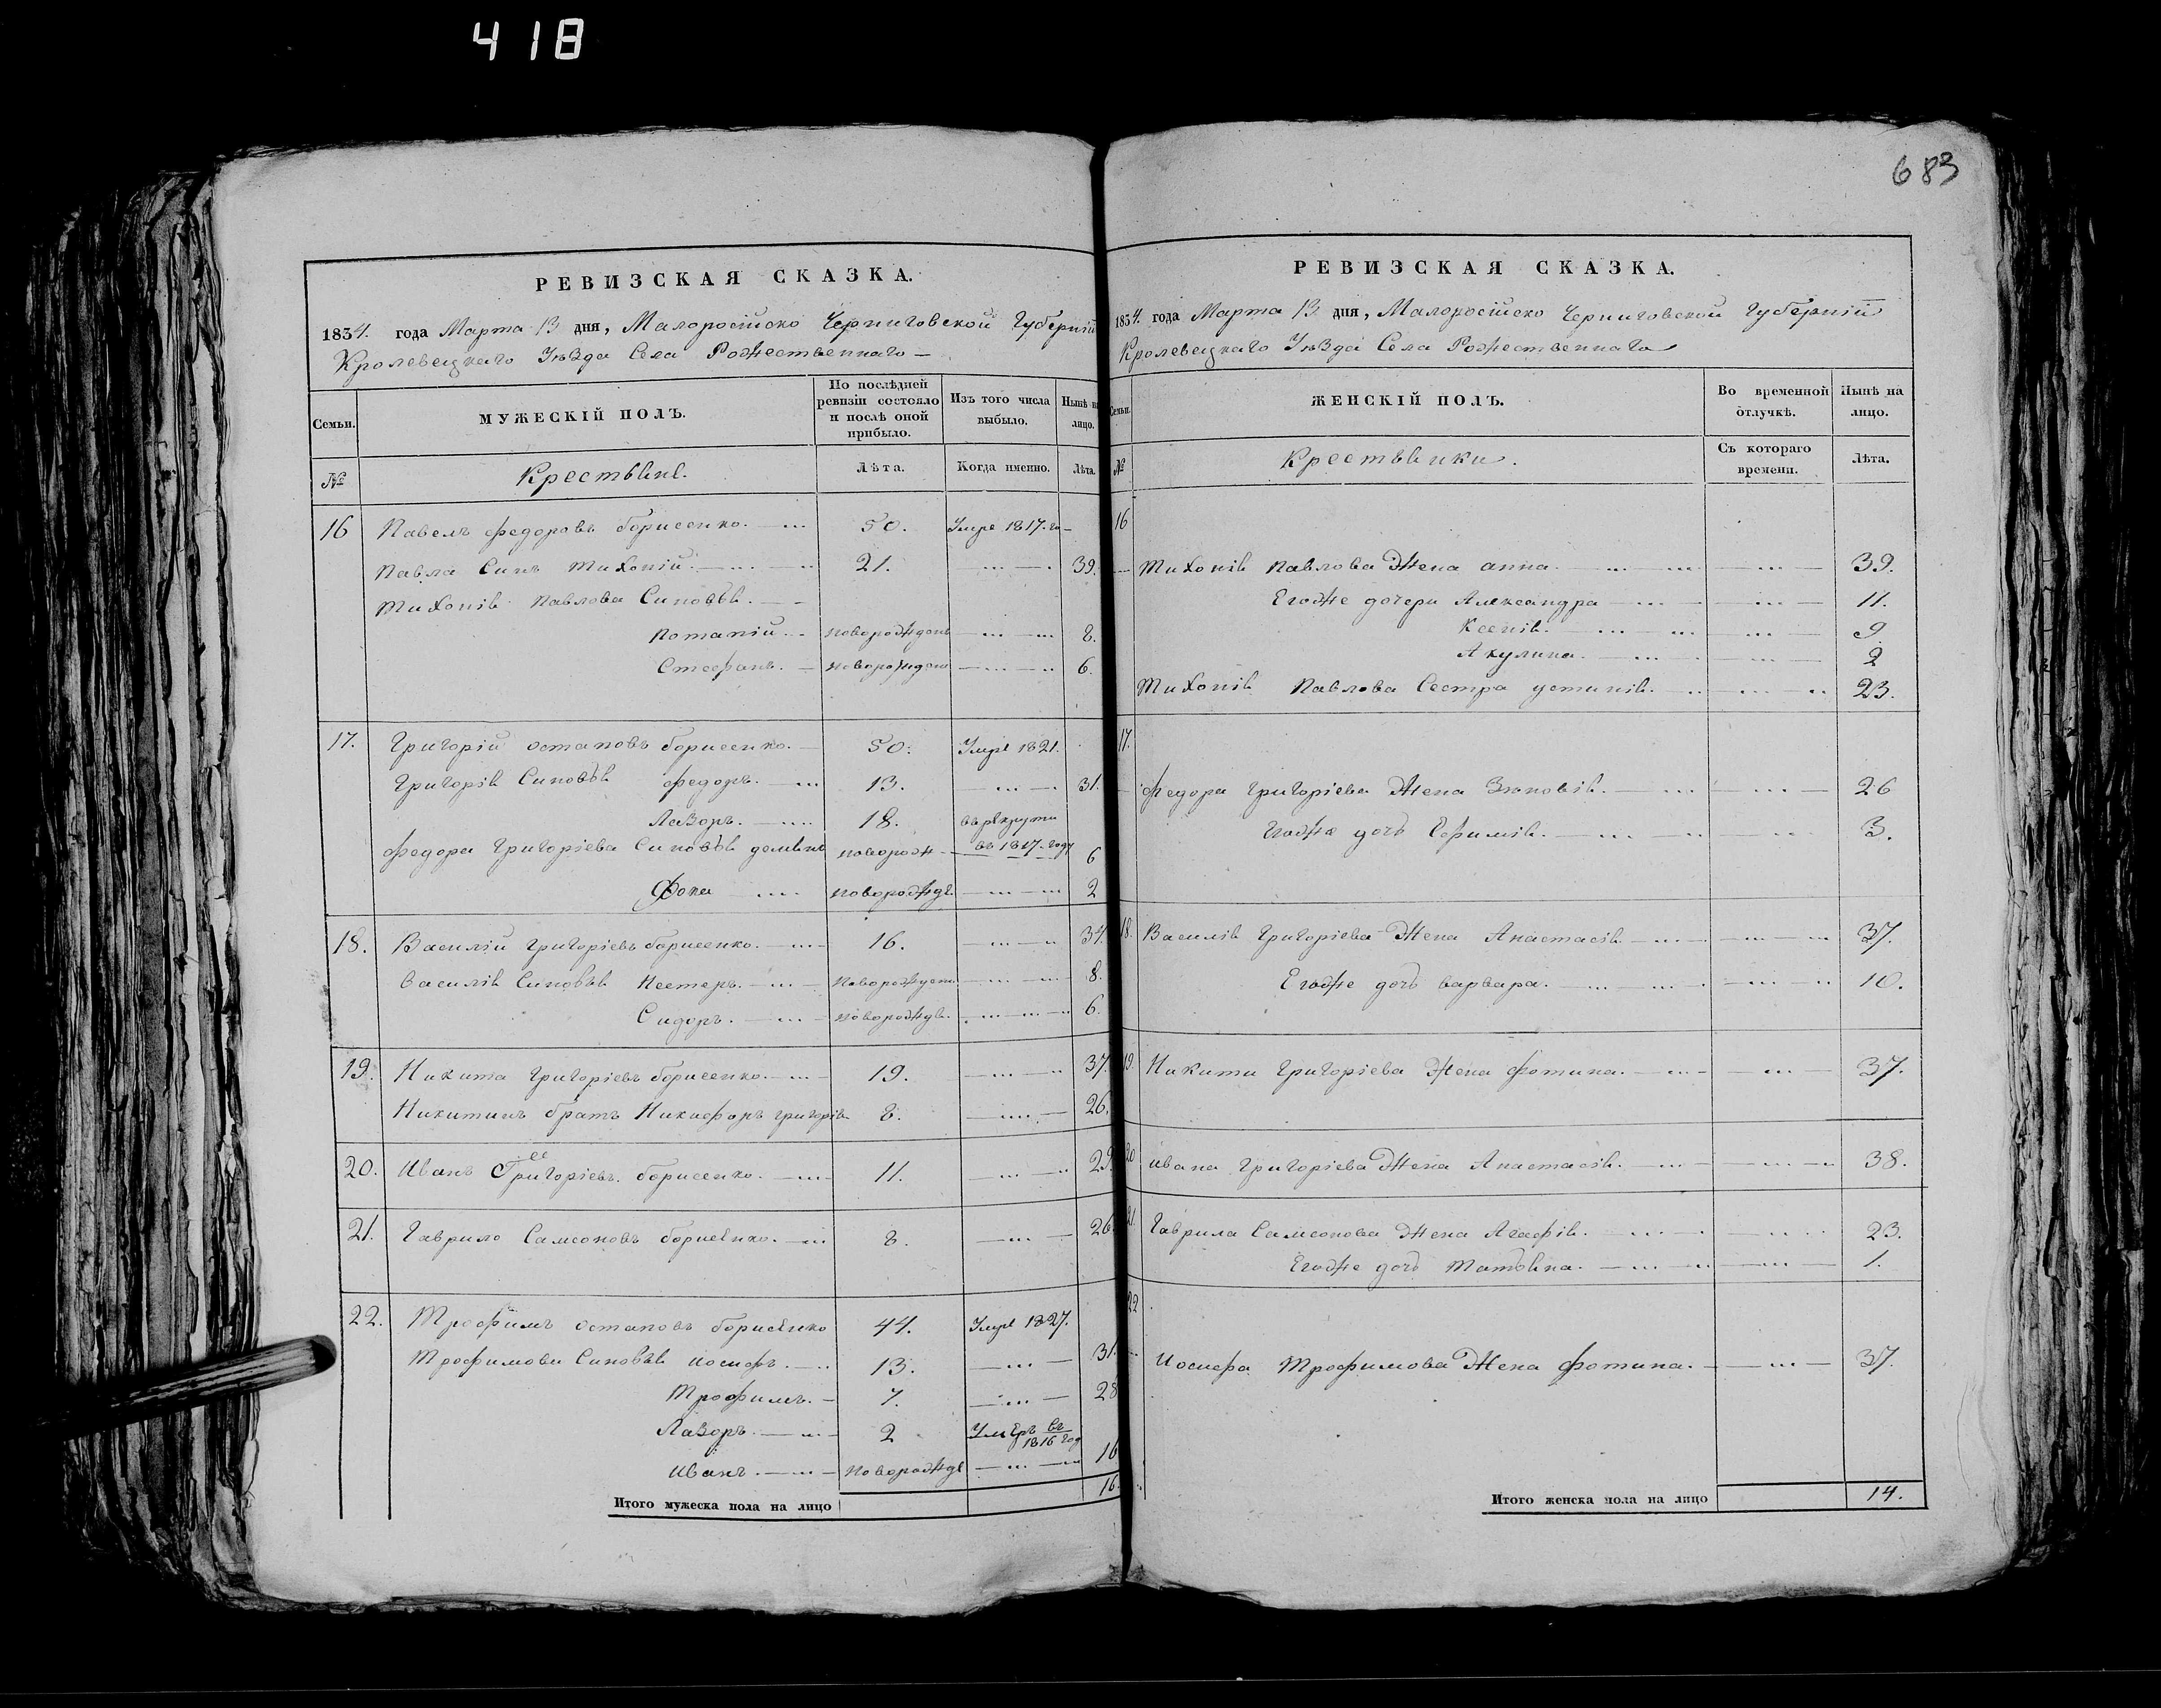 418
683
РЕВИЗСКАЯ СКАЗКА.
1834. года Марта 13 дня, Малоросійско Черниговской Губерніи
Кролевецкаго Уѣзда Села Рожественнаго
Семьи.
МУЖЕСКІЙ ПОЛЪ.
По послѣдней ревизіи состояло и послѣ оной прибыло.
Изъ того числа выбыло.
Нынѣ на лицо.
№
Крестьяне.
Лѣта.
Когда именно.
Лѣта.
16 Павелъ федоровъ борисенко. 50. Умре 1817. го
Павла Синъ Тихоній. 21. 39.
Тихонія Павлова Синовья.
Потапій. новорожденъ 8.
Стефанъ. новорожден 6.
17. Григорій остаповъ борисенко. 50. Умре 1821.
Григорія Синовья федоръ. 13. 31.
Лазоръ. 18. въ рекрути
въ 1817. году
федора Григоріева Синовья демянъ новорож 6
Фока новорождя. 2
18. Василій григоріевъ борисенко. 16. 34.
Василія Синовья Нестеръ. Новорожден 8.
Сидоръ. новорождя. 6.
19. Никита григоріевъ борисенко. 19. 37.
Никитинъ братъ Никифоръ григорів 8. 26.
20. Иванъ Григоріевъ борисенко. 11. 29.
21. Гаврило Самсоновъ борисенко. 8. 26
22. Трофимъ остаповъ борисенко 44. Умре 1827.
Трофимови Синовья иосифъ. 13. 31.
Трофимъ. 7. 28
Лазоръ. 2 Умеръ въ
1816 год
иванъ. новорождя 16
Итого мужеска пола на лицо 16.
РЕВИЗСКАЯ СКАЗКА.
1834. года Марта 13 дня, Малоросійско Черниговской Губерніи
Кролевецкаго Уѣзда Села Рожественнаго
Семьи.
ЖЕНСКІЙ ПОЛЪ.
Во временной отлучкѣ.
Нынѣ на лицо.
№
Крестьянки.
Съ котораго времени.
Лѣта.
16
Тихонія Павлова Жена анна. 39.
Егоже дочери Александра 11.
Ксенія. 9.
Акулина. 2
Тихонія Павлова Сестра устинія. 23.
17.
федора григоріева Жена Зиновія. 26
Егоже дочь Ефимія. 3.
18. Василія григоріева Жена Анастасія 37.
Егоже дочь варвара. 10.
19. Никити григоріева Жена фотина. 37.
20 ивана григоріева Жена Анастасія. 38.
21. Гаврила Самсонова Жена Агафія. 23.
Егоже дочь Татьяна. 1.
22
Иосифа Трофимова Жена фотина. 37.
Итого женска пола на лицо 14.